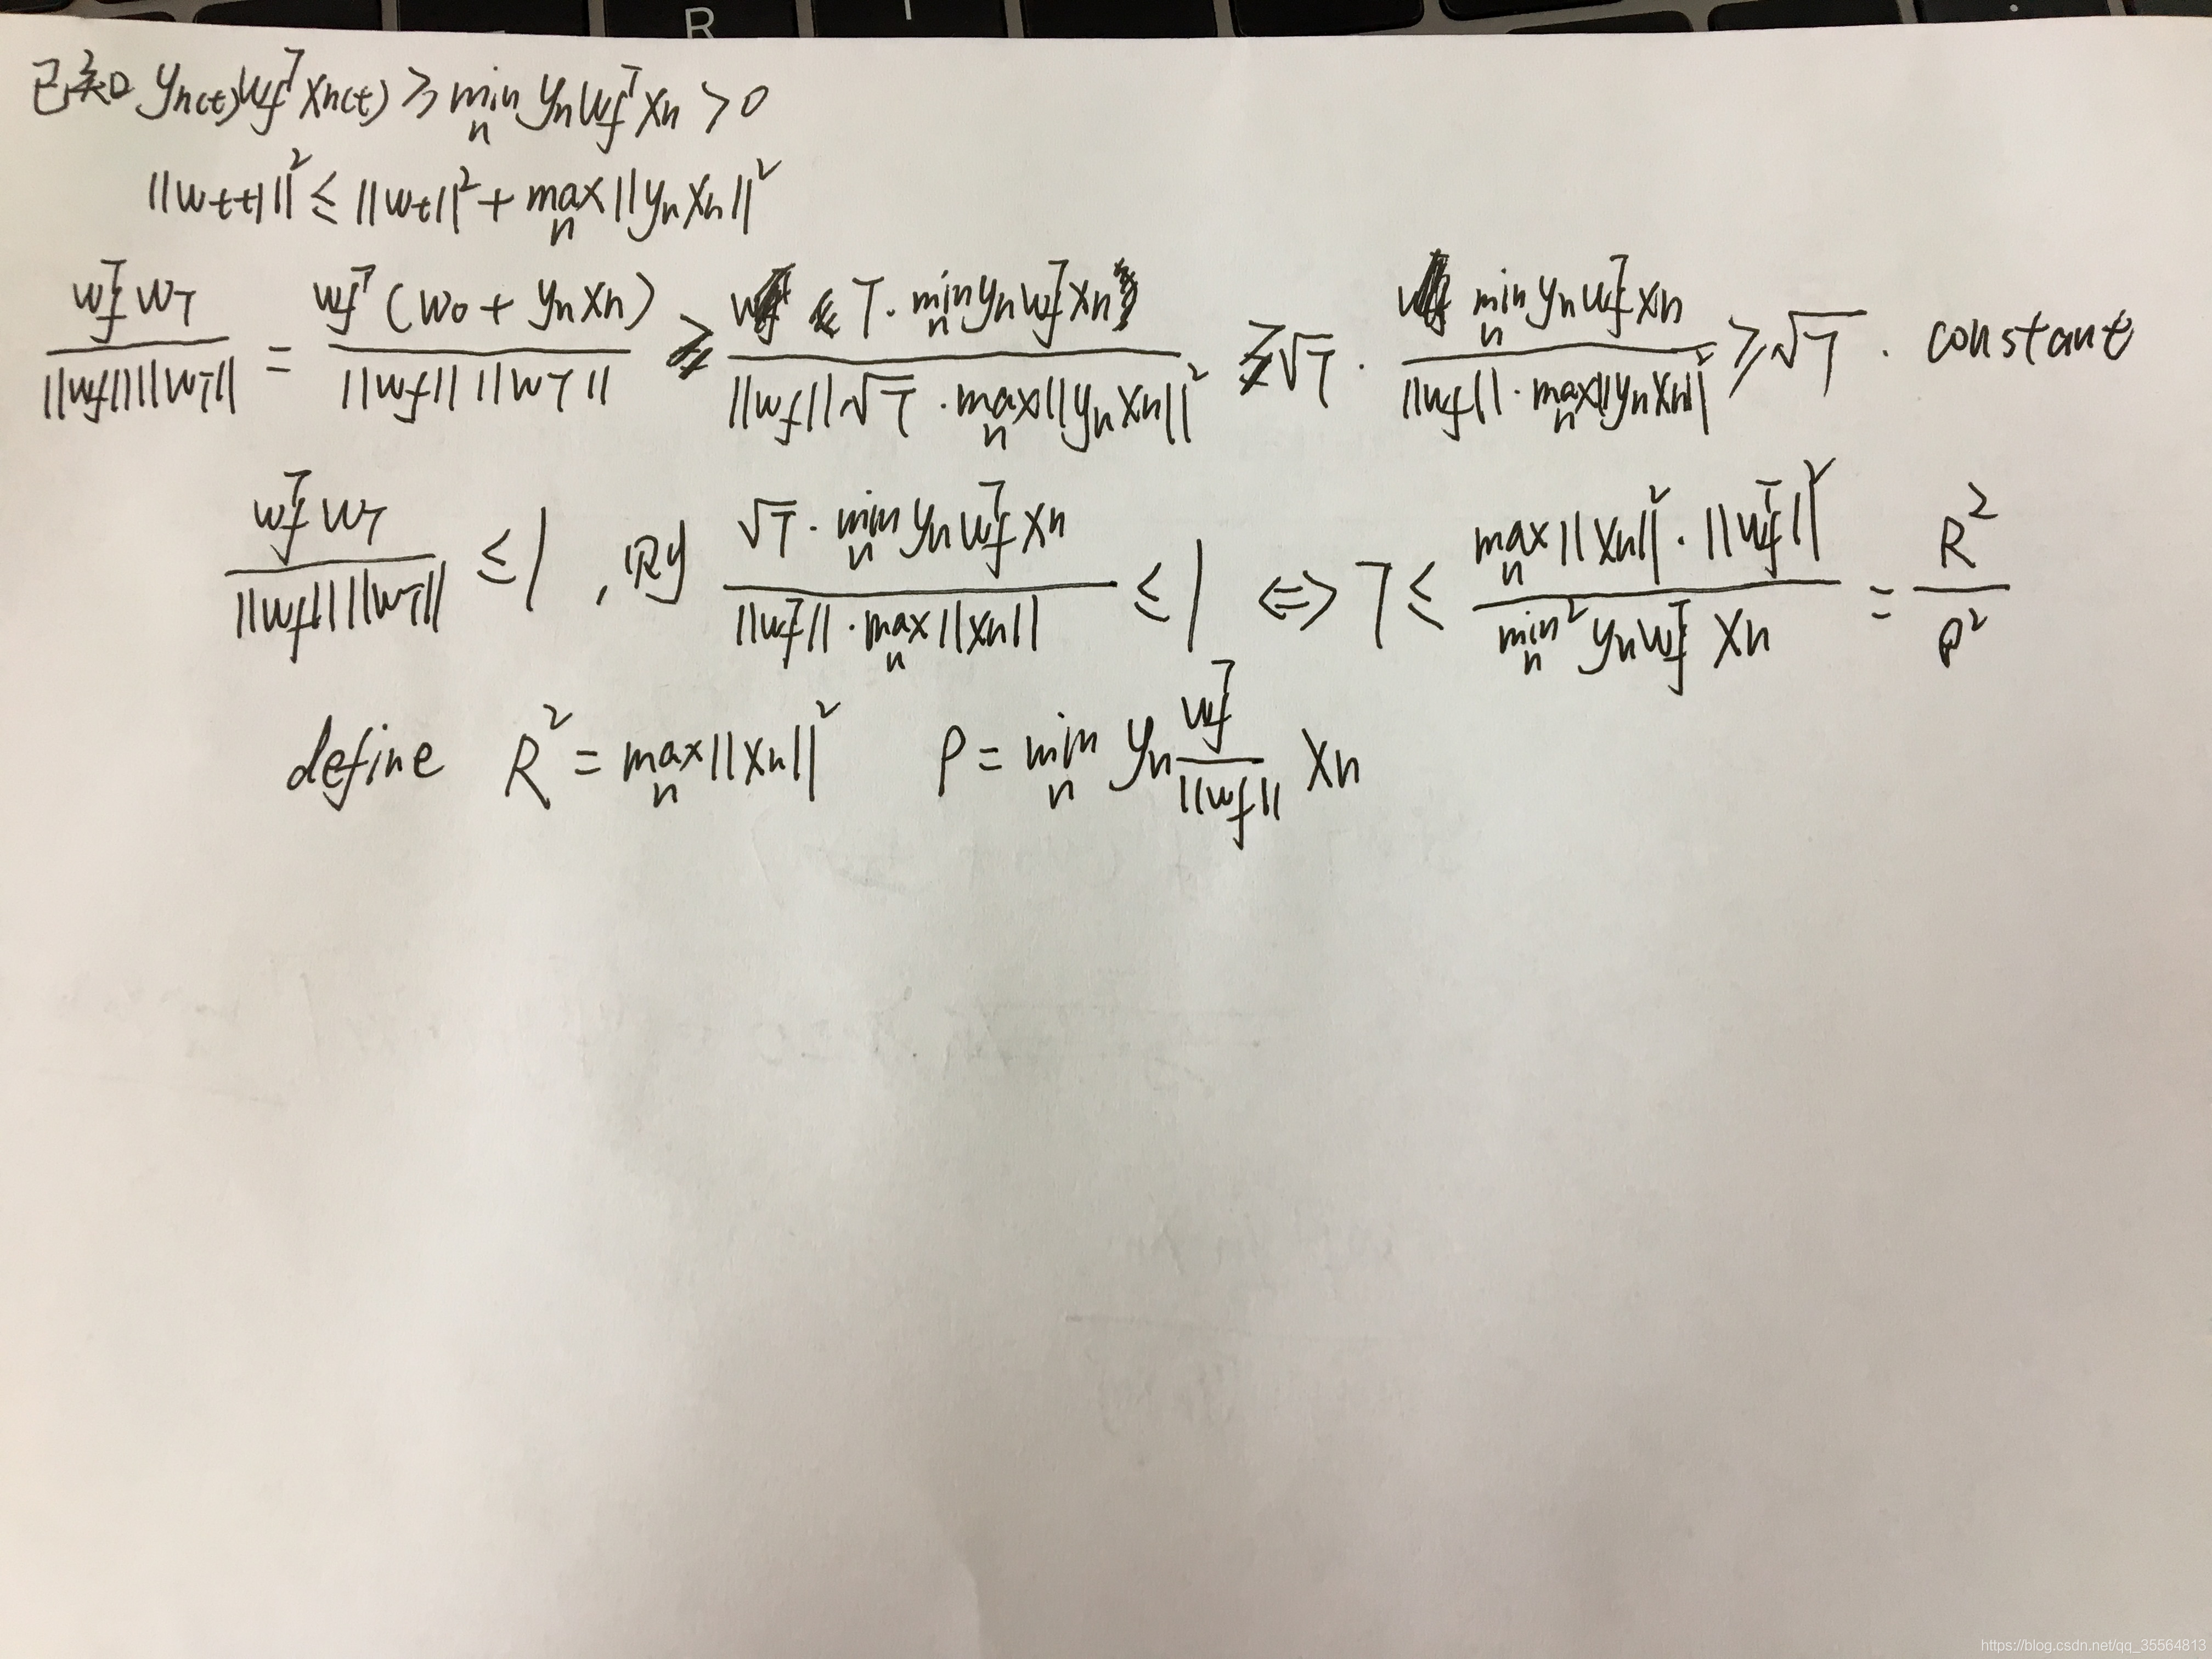 R
已知 y_{n(t)} w_f^T x_{n(t)} ≥ min_n y_n w_f^T x_n > 0
||w_{t+1}||^2 ≤ ||w_t||^2 + max_n ||y_n x_n||^2
\frac{w_f^T w_T}{||w_f|| ||w_T||} = \frac{w_f^T (w_0 + y_n x_n)}{||w_f|| ||w_T||} ≥ \frac{T · min_n y_n w_f^T x_n}{||w_f|| \sqrt{T} · max_n ||y_n x_n||^2} ≥ \sqrt{T} · \frac{min_n y_n w_f^T x_n}{||w_f|| · max_n ||y_n x_n||^2} ≥ \sqrt{T} · constant
\frac{w_f^T w_T}{||w_f|| ||w_T||} ≤ 1 , 则 \frac{\sqrt{T} · min_n y_n w_f^T x_n}{||w_f^T|| · max_n ||x_n||} ≤ 1 ⇔ T ≤ \frac{max_n ||x_n||^2 · ||w_f^T||^2}{min_n^2 y_n w_f^T x_n} = \frac{R^2}{ρ^2}
define R^2 = max_n ||x_n||^2 ρ = min_n y_n \frac{w_f^T}{||w_f||} x_n
https://blog.csdn.net/qq_35564813